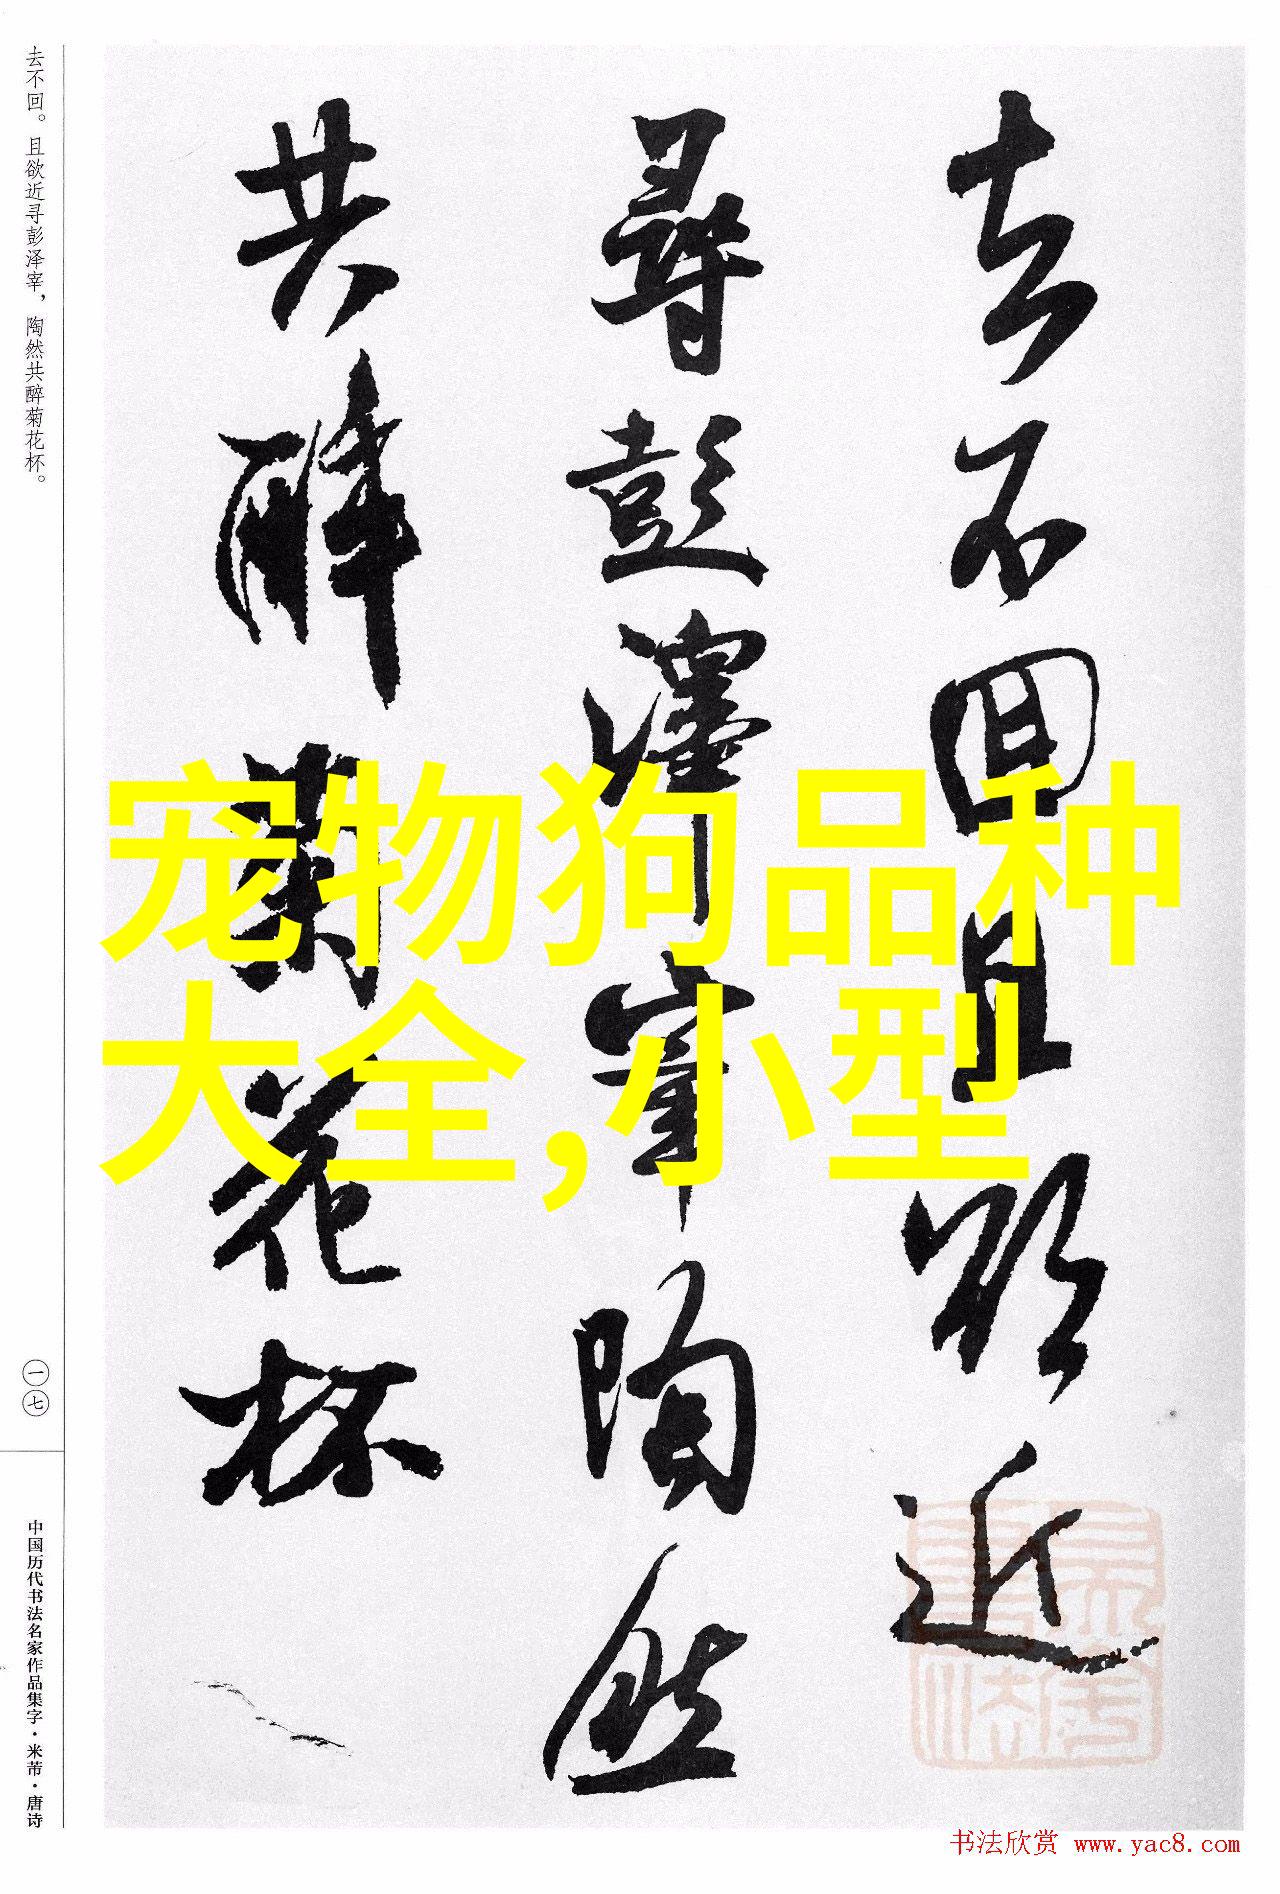 去不回且欲近
尋彭澤宰陶然
共醉菊花杯
宠物狗品种
大全,小型
去不回。且欲近寻彭泽宰，陶然共醉菊花杯。
一七
中国历代书法名家作品集字·米芾·唐诗
书法欣赏 www.yac8.com